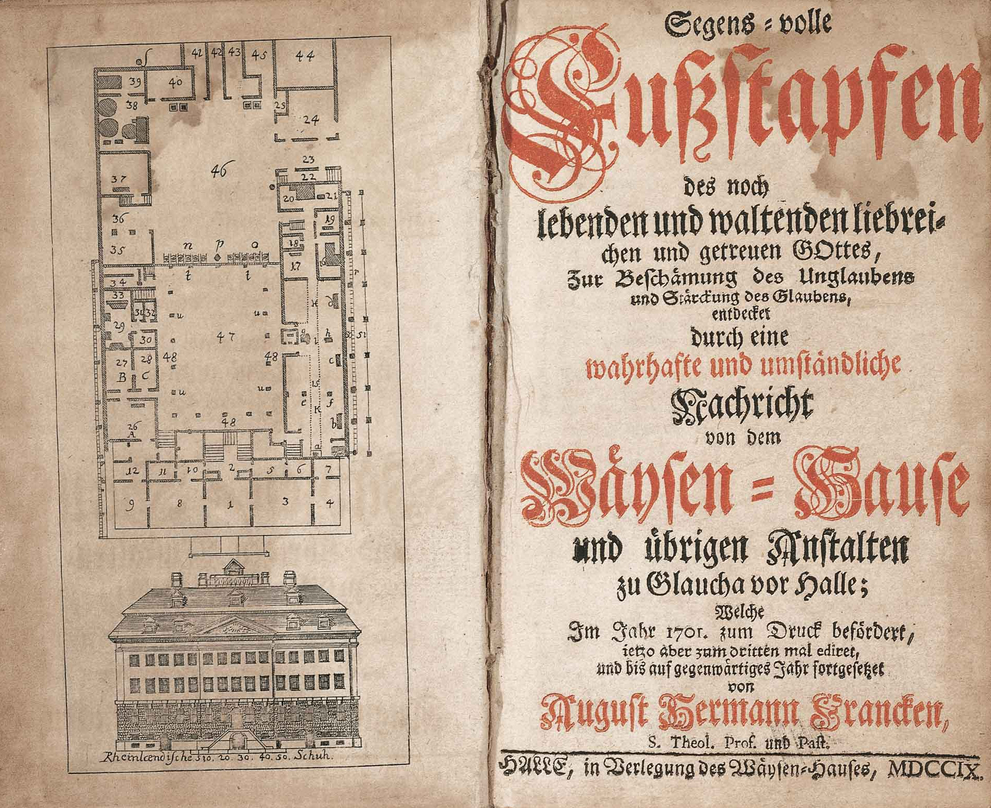 41 42 43 45 44
39 40
38
25
24
46
23
22
37
20 21
36
19
35
18
n p o
17
t t
34
33
u u
29
47
30
48 48
27 28
B C
u u
26
A
48
12 11 10 2 5 6 7
9 8 1 3 4
Rheinlcendische 5 10. 20. 30. 40. 50. Schuh.
Segens-volle
Fußstapfen
des noch
lebenden und waltenden liebrei-
chen und getreuen GOttes,
Zur Beschämung des Unglaubens
und Stärckung des Glaubens,
entdecket
durch eine
wahrhafte und umständliche
Nachricht
von dem
Wäysen-Hause
und übrigen Anstalten
zu Glaucha vor Halle;
Welche
Im Jahr 1701. zum Druck befördert,
ietzo aber zum dritten mal ediret,
und bis auf gegenwärtiges Jahr fortgesetzet
von
August Hermann Francken,
S. Theol. Prof. und Past.
HALLE, in Verlegung des Wäysen-Hauses, MDCCIX.